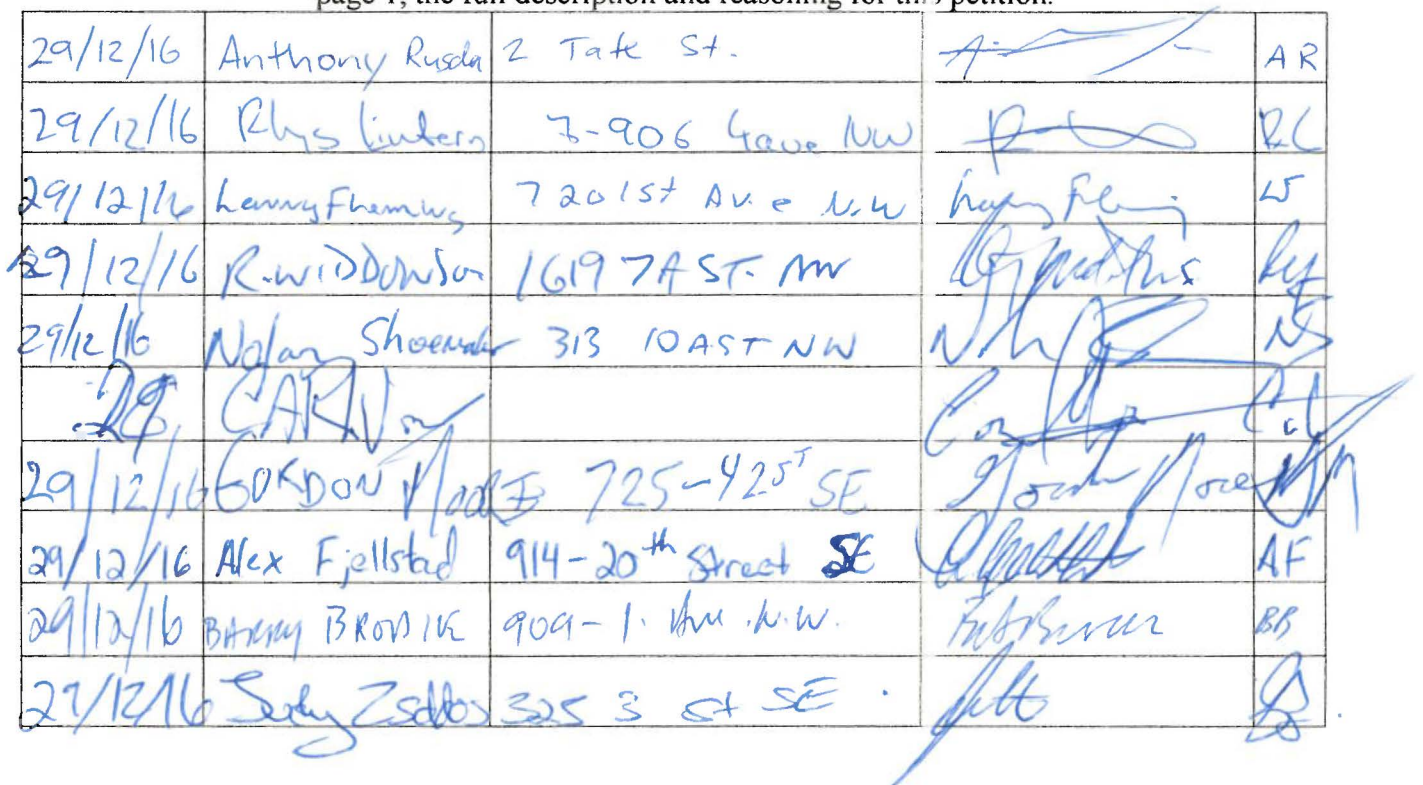 page 1, the full description and reasoning for this petition.
29/12/16 Anthony Rusda 2 Tate St. AR
29/12/16 Rhys Lintern 7-906 4 ave NW RL
29/12/16 Larry Fleming 720 1st Av.e N.W Larry Fleming LF
29/12/16 R. WIDDOWSON 1619 7A ST. NW
29/12/16 Nolan Shoemaker 313 10A ST NW NS
29
29/12/16 GORDON MOORE 725-42 ST SE Gordon Moore GM
29/12/16 Alex Fjellstad 914-20th Street SE AF
29/12/16 BARRY BRODIE 909-1. Ave. N.W. BB
29/12/16 325 3 st SE.